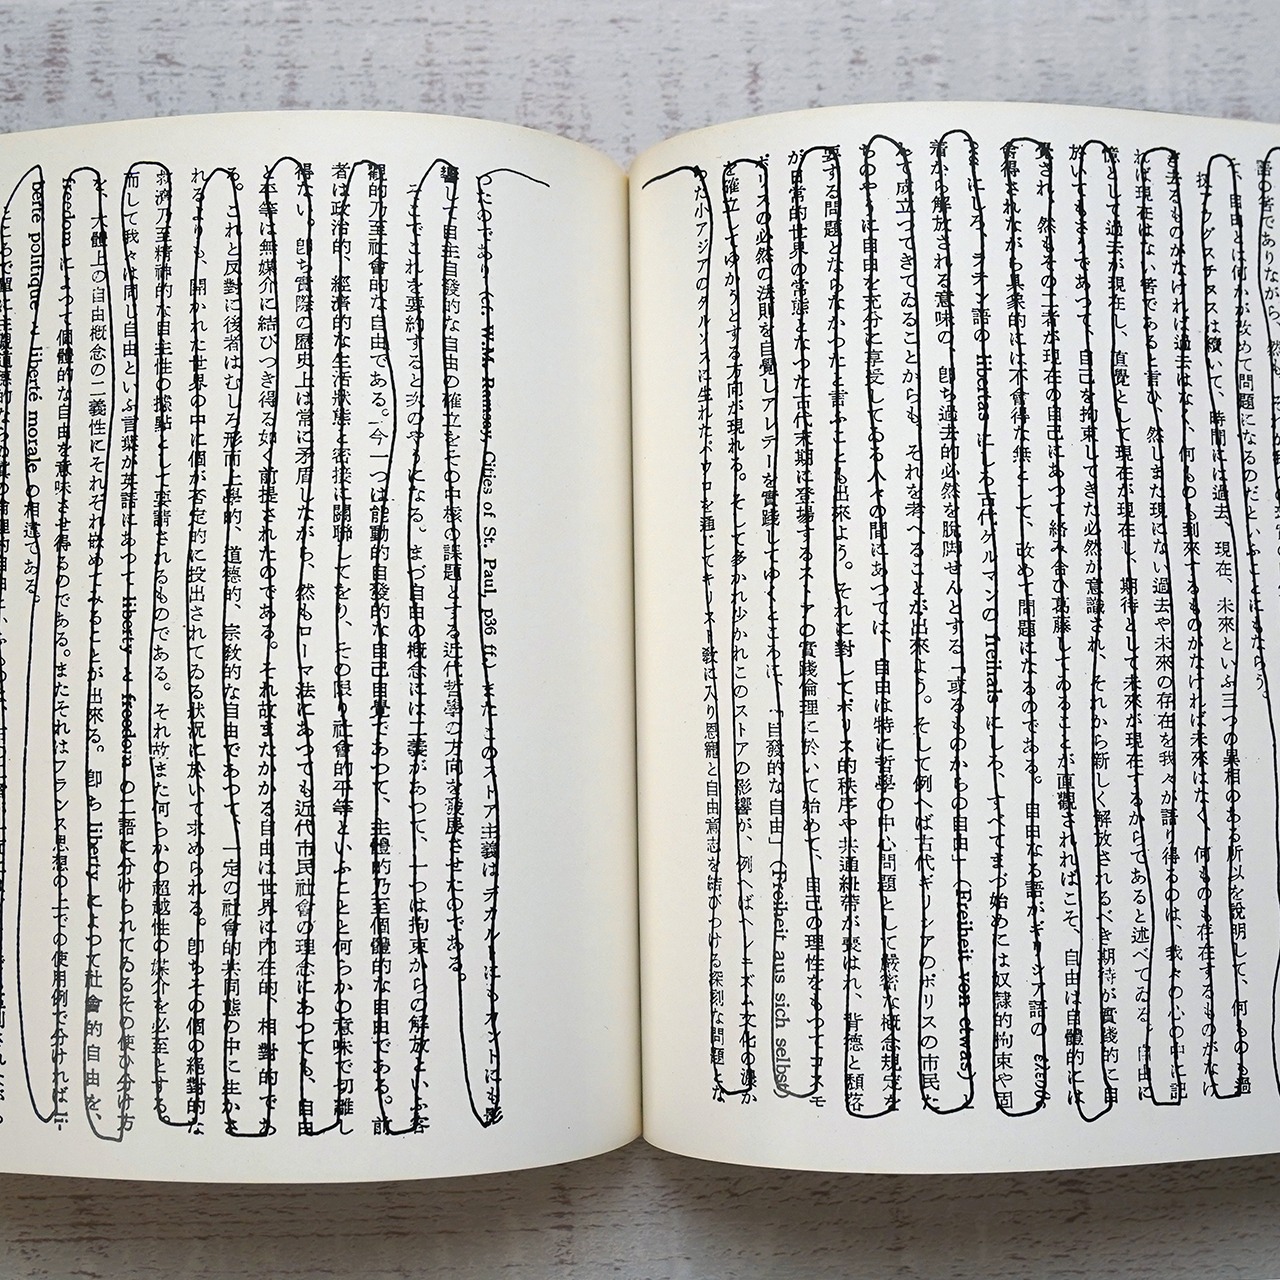 二、自由とは何かが改めて問題になるのだといふことにもならう。
於いてもさうであつて、自己を拘束してきた必然が意識され、それから新しく解放されるべき期待が實踐的に自
され、然もその二者が現在の自己にあつて絡み合ひ葛藤してゐることが直觀されればこそ、自由は自體的には
會得されながら具象的には不會得な無として、改めて問題になるのである。自由なる語がギリシア語の
にしろ、ラテン語の libertas にしろ古代ゲルマンの freihals にしろ、すべてまづ始めには奴隷的拘束や固
着から解放される意味の、卽ち過去的必然を脫脚せんとする「或るものからの自由」(Freiheit von etwas) と
て成立つてきてゐることからも、それを考へることが出來よう。そして例へば古代ギリシアのポリスの市民た
ちのやうに自由を充分に享受してゐる人々の間にあつては、自由は特に哲學の中心問題として嚴密な槪念規定を
要する問題とならなかつたと言ふことも出來よう。それに對してポリス的秩序や共通紐帶が喪はれ、背德と頽落
が日常的世界の常態となつた古代末期に登場するストアの實踐倫理に於いて始めて、自己の理性をもつてコスモ
ポリスの必然の法則を自覺しアレテーを實踐してゆくところに、「自發的な自由」(Freiheit aus sich selbst)
を確立してゆかうとする方向が現れる。そして多かれ少かれこのストアの影響が、例へばヘレニズム文化の濃か
つた小アジアのタルソスに生れたパウロを通じてキリスト敎に入り恩寵と自由意志を結びつける深刻な問題とな
つたのであり(cf. W.M. Ramsey, Cities of St. Paul, p36 ff.)またこのストア主義はデカルトにもカントにも影
響して自主自發的な自由の確立をその中核の課題とする近代哲學の方向を發展させたのである。
そこでこれを要約すると次のやうになる。まづ自由の槪念には二義があつて、一つは拘束からの解放といふ客
觀的乃至社會的な自由である。今一つは能動的自發的な自己自覺であつて、主體的乃至個體的な自由である。前
者は政治的、經濟的な生活狀態と密接に關聯してをり、その限り社會的平等といふことと何らかの意味で切離し
得ない。卽ち實際の歷史上は常に矛盾しながら、然もローマ法にあつても近代市民社會の理念にあつても、自由
と平等に無媒介に結びつき得る如く前提されたのである。それ故またかかる自由は世界に內在的、相對的であ
る。これと反對に後者はむしろ形而上學的、道德的、宗敎的な自由であつて、一定の社會的共同態の中に生かさ
れるよりも、開かれた世界の中に個が否定的に投出されてゐる狀況に於いて求められる。卽ちその個の絕對的な
救濟乃至精神的な自主性の據點として要請されるものである。それ故また何らかの超越性の媒介を必至とする。
而して我々は同じ自由といふ言葉が英語にあつて liberty と freedom の二語に分けられてゐるその使ひ分け方
を、大體上の自由槪念の二義性にそれぞれ嵌めてみることが出來る。卽ち liberty によつて社會的自由を、
freedom によつて個體的な自由を意味させ得るのである。またそれはフランス思想の上での使用例で分ければ li-
berté politique と liberté morale の相違である。